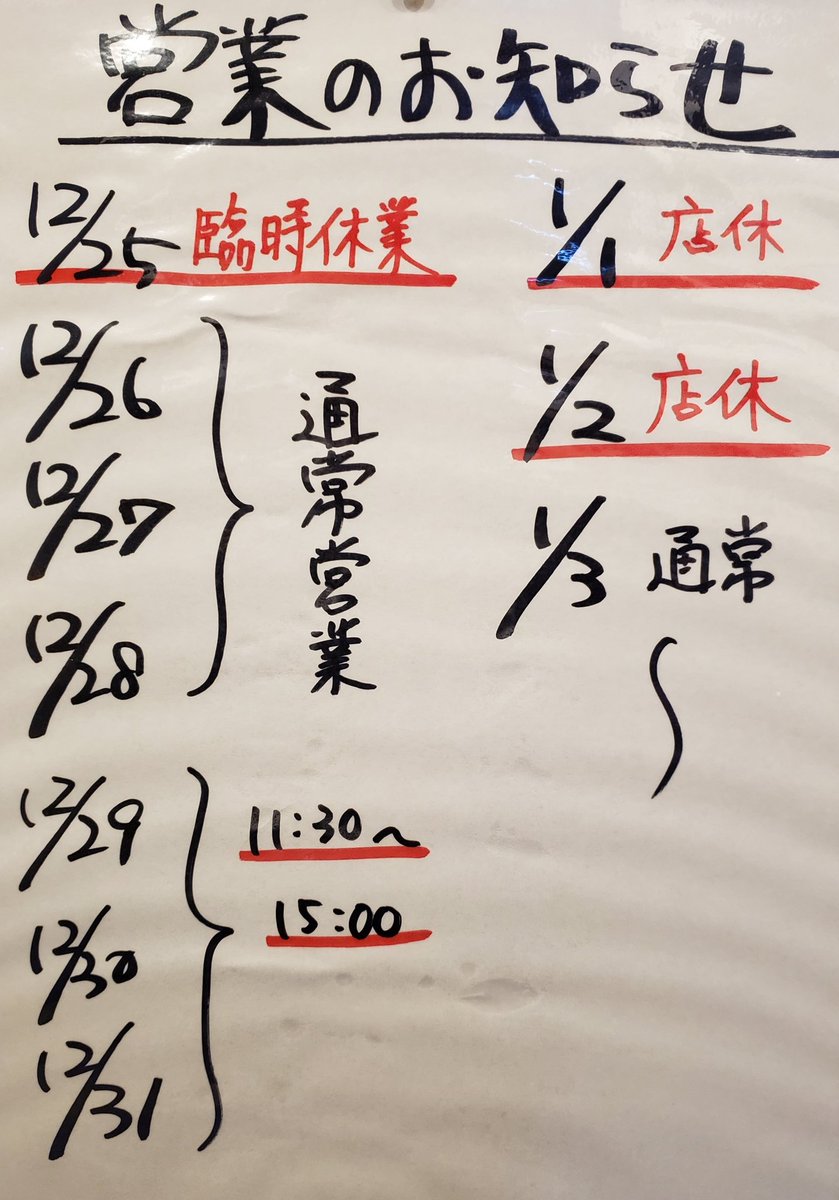 営業のお知らせ
12/25 臨時休業
12/26
12/27
12/28
通常営業
12/29
12/30
12/31
11:30～
15:00
1/1 店休
1/2 店休
1/3 通常
～